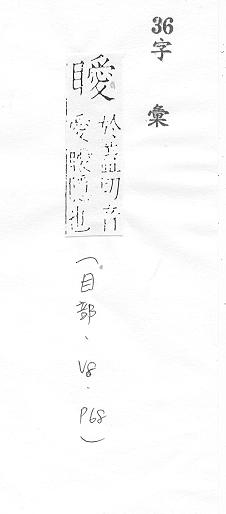 36
字彙
曖
於蓋切音
愛曖隱也
(目部、V8、P68)